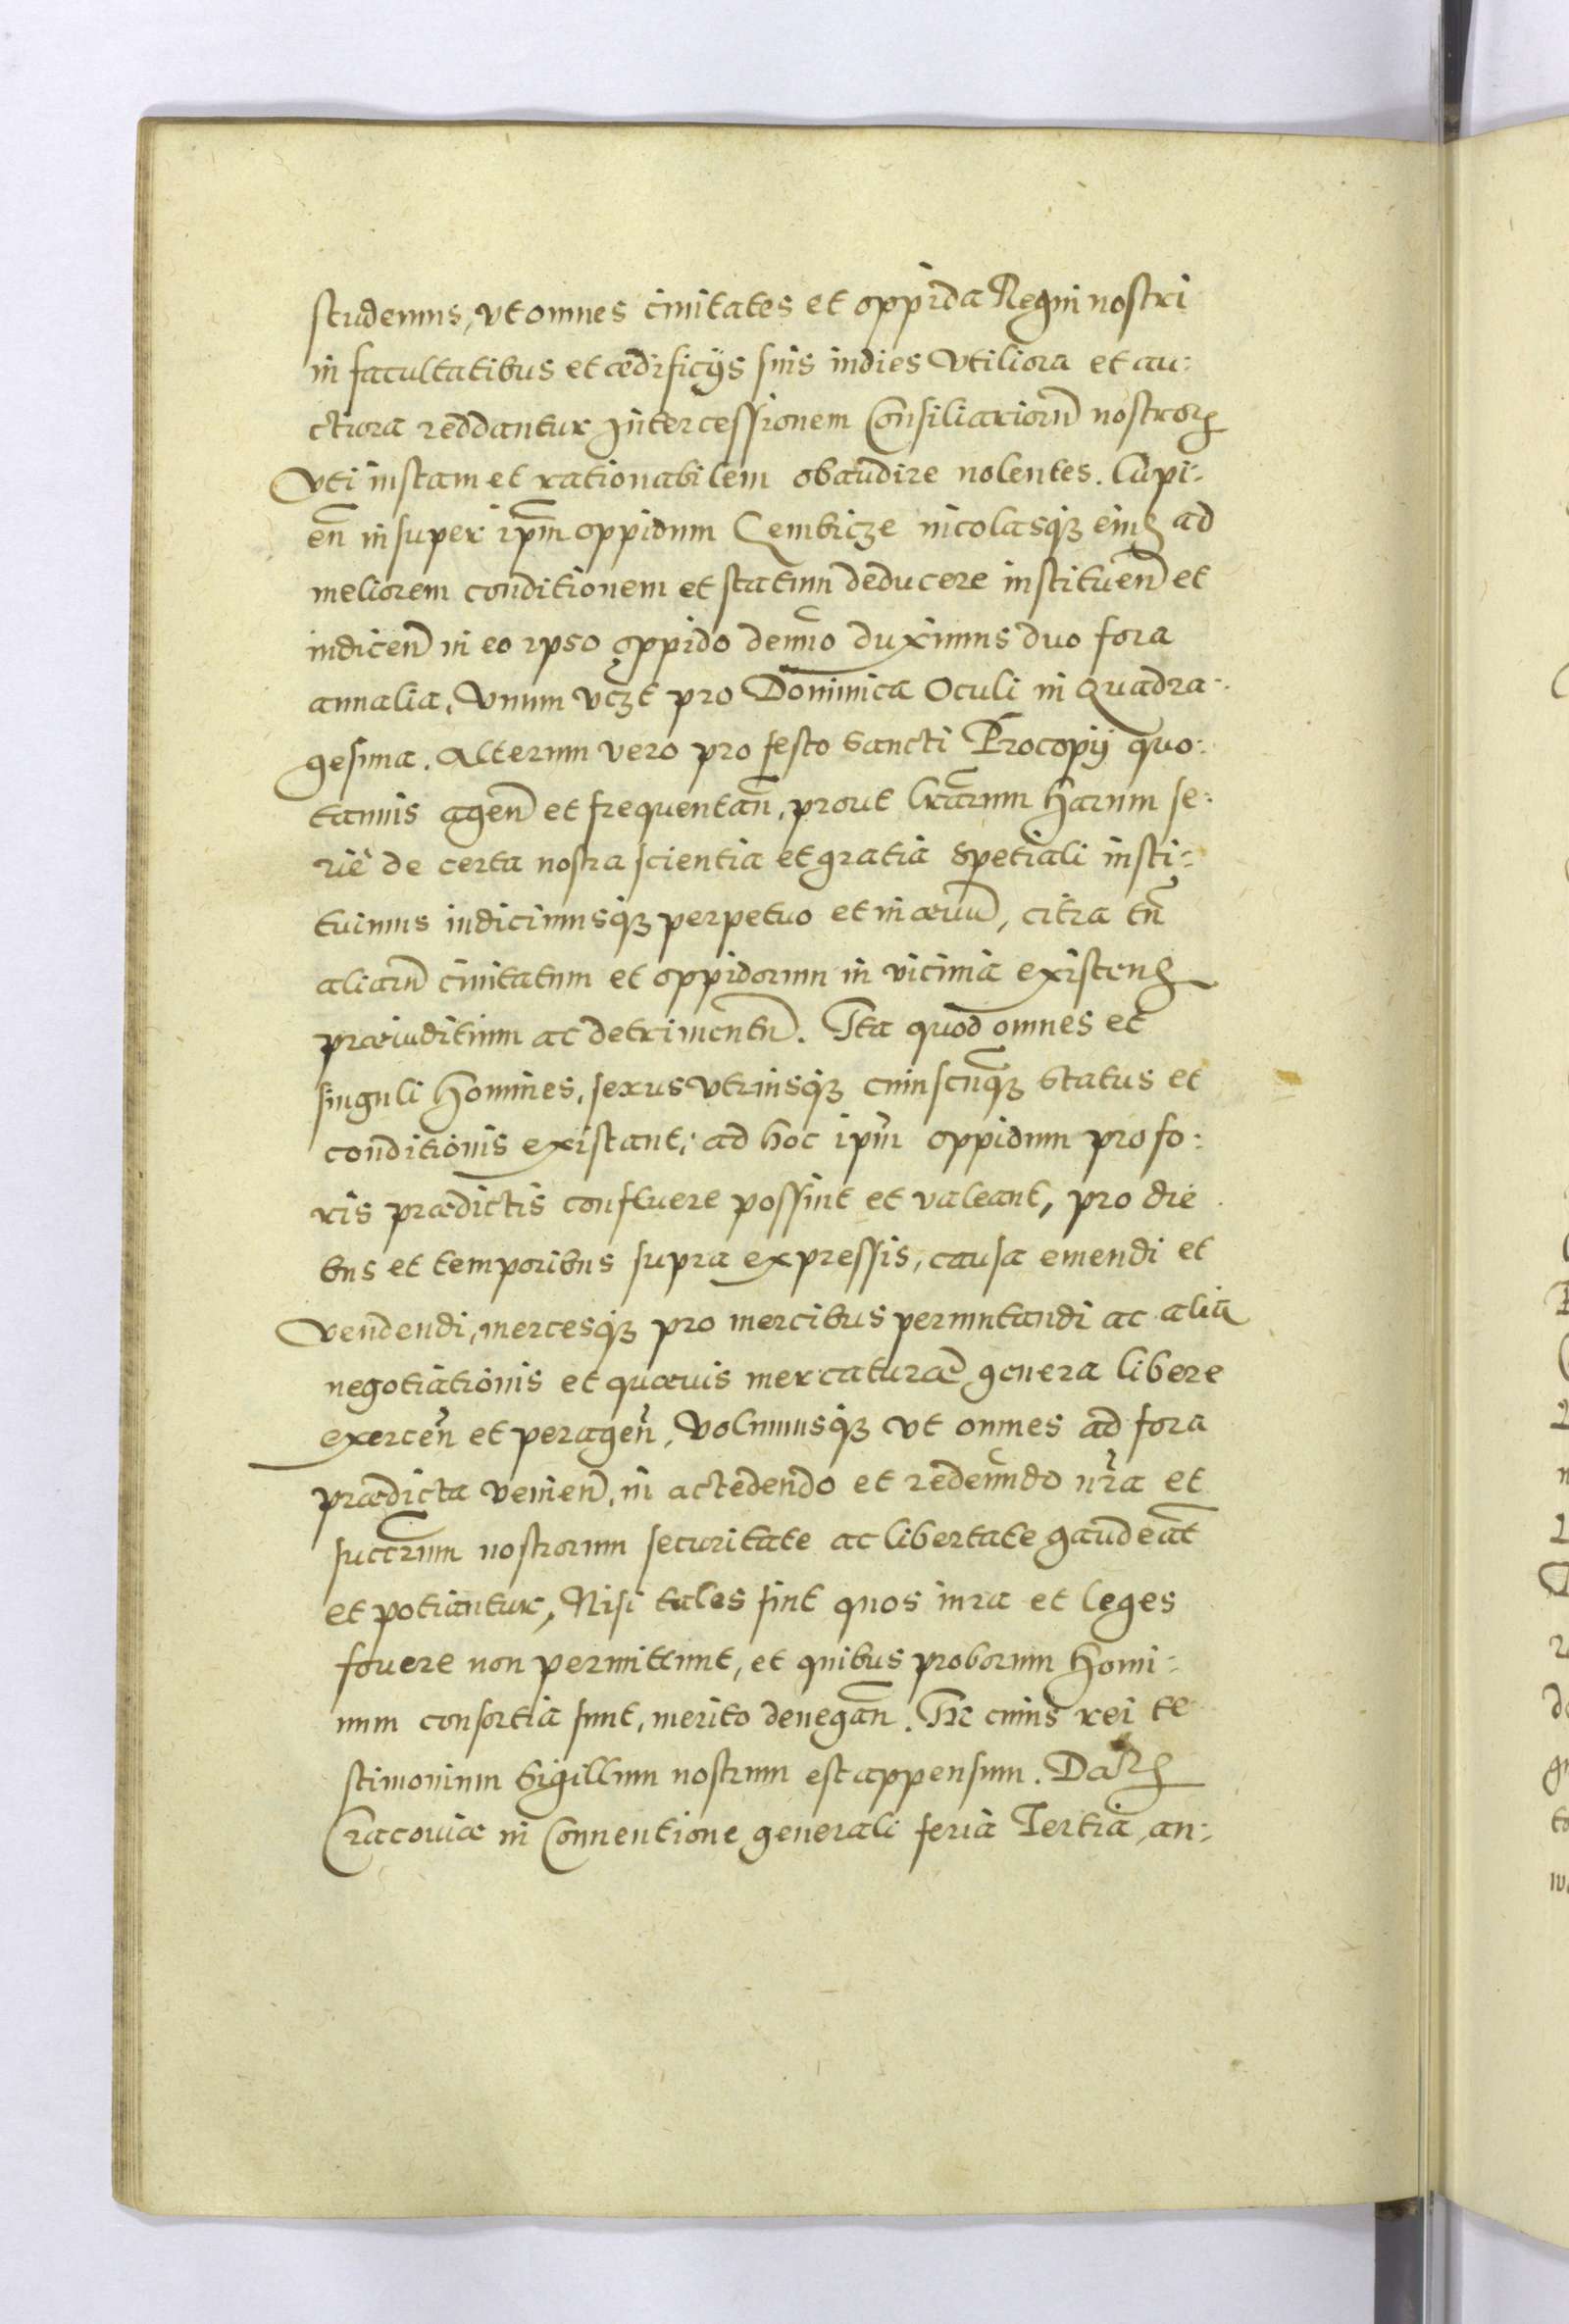 studemus, vt omnes ciuitates et oppida Regni nostri
in facultatibus et ædificijs suis indies vtiliora et au:
ctiora reddantur Intercessionem Consiliariorũ nostroꝝ
Vti iustam et rationabilem obaudire nolentes. Cupi:
eñ insuper ip̃m oppidum Gembicze incolasqꝫ eiuꝰ ad
meliorem conditionem et statum deducere instituen̄ et
indicen̄ in eo ipso oppido denuo duximus duo fora
annalia, Vnum vcꝫt pro Dominica Oculi in Quadra:
gesima. Alterum vero pro festo Sancti Procopij quo:
tannis agen̄ et frequentan̄, prout lr̃arum harum se:
rie de certa nostra scientia et gratia spetiali insti:
tuimus indicimusqꝫ perpetuo et in æuũ, citra tñ
aliarũ ciuitatum et oppidorum in vicinia existenꝭ
præiuditium ac detrimentũ. Ita quod omnes et
singuli homines, sexus vtriusqꝫ cuiuscũqꝫ status et
conditionis existant, ad hoc ip̃m oppidum pro fo:
ris prædictis confluere possint et valeant, pro die
bus et temporibus supra expressis, causa emendi et
Vendendi, mercesqꝫ pro mercibus permutandi ac alia
negotiationis et quæuis mercaturæ genera libere
exercen̄ et peragen̄, volumusqꝫ vt omnes ad fora
prædicta venien̄, in accedendo et redeundo nr̃a et
succr̃um nostrorum securitate ac libertate gaudeãt
et potiantur, Nisi tales sint quos iura et leges
fouere non permittunt, et quibus proborum homi:
num consortia sunt, merito denegan̄. In cuius rei te
stimonium Sigillum nostrum est appensum. Datꝭ
Cracouiæ in Conuentione generali feria Tertia, an: